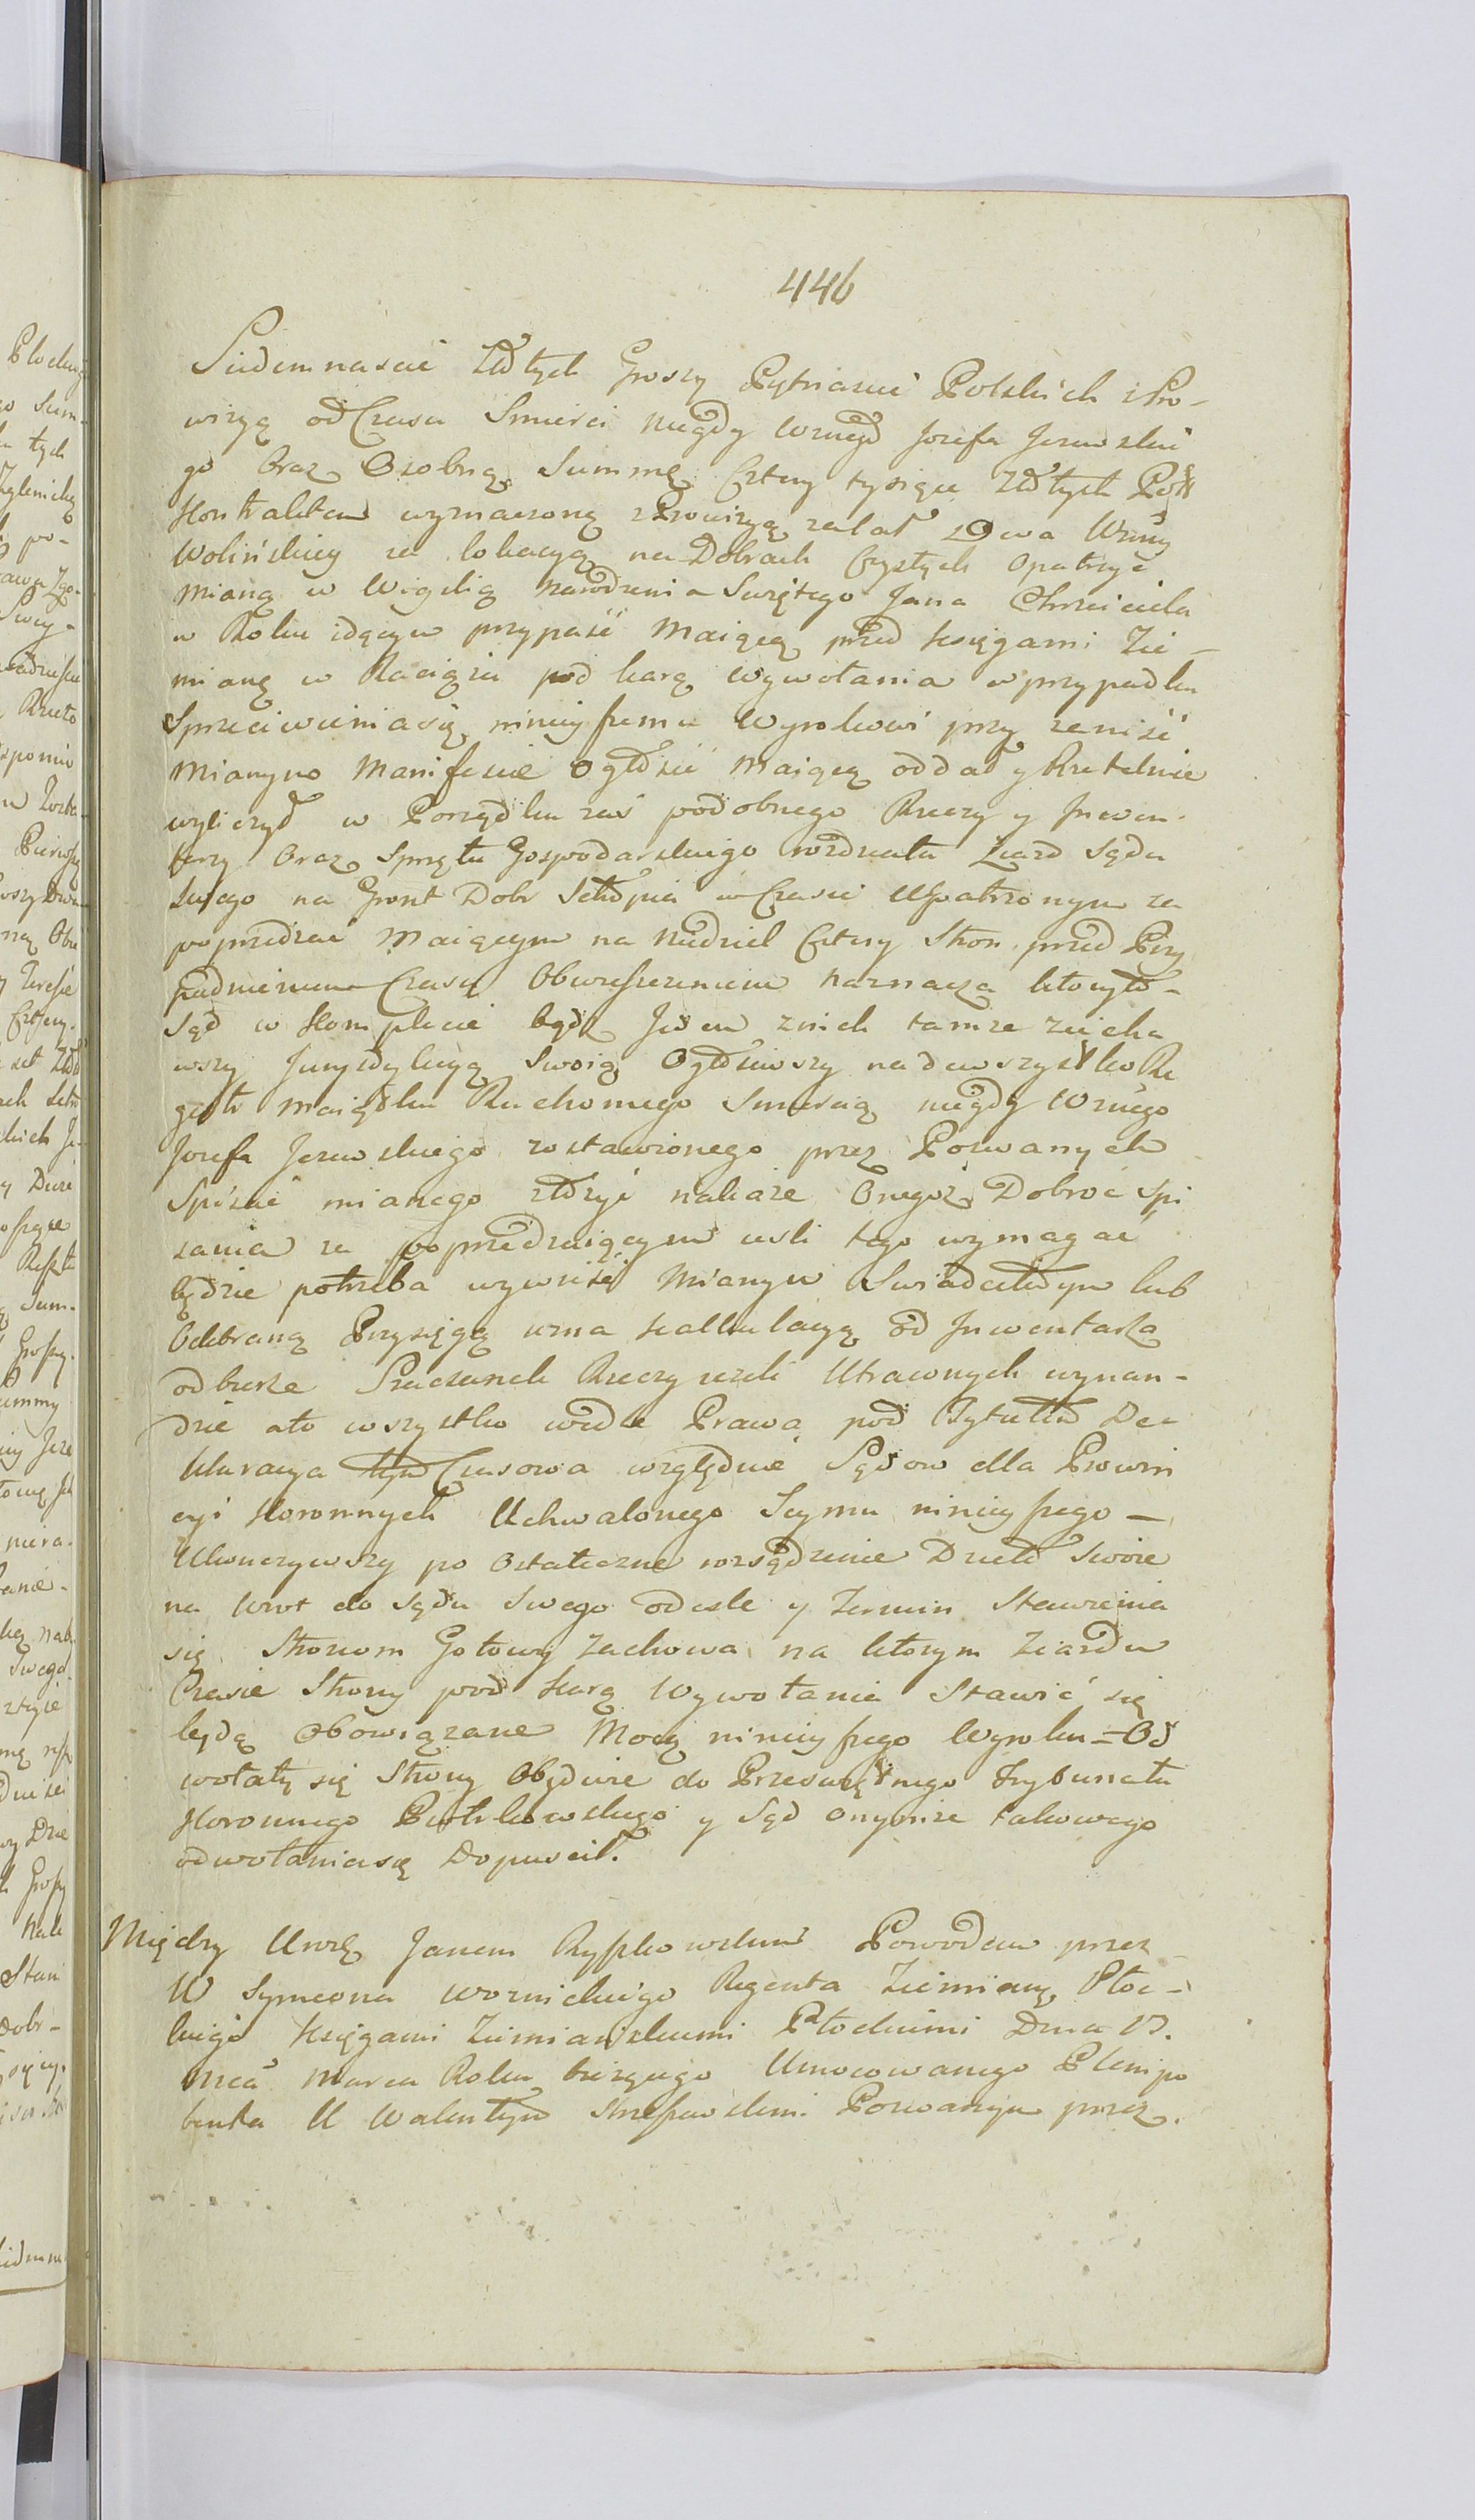 446
Siedmnascie Złłtych Groszy Pętnascie Polskich z Pro-
wizyą od Czasu Smierci niegdy Wzneg͠o Jozefa Jezewskie
go Oraz Osobną Summę Cztery tysiące Złłtych Pols
Kontraktem wyznaczoną z Prowizyą za lat Dwa Wzney
Wolińskiey za lokacyą na Dobrach Czystych opatrzyc
mianą w Wigilią Narodzenia Swiętego Jana Chrzciciela
w Roku idącym przypaść Maiącą przed księgami Zie-
mianę w Raciążu pod karą wywołania w przypadku
Sprzeciwieniasię ninieyszemu Wyrokowi przy zeniść
mianym Manifescie Ogłosić Maiącą oddał y Rzetelnie
wyliczył w Porządku zaś podobnego Rzeczy y Inwen-
tarzy Oraz Sprzętu Gospodarskiego rozdziału Ziazd Sądu
Swego na Gront Dobr Setropia w Czasie Upatrzonym za
poprzedzać Maiącym na Niedziel Cztery Stron przed Przy
padnieniem Czasu Obwieszczeniem naznacza ktory to-
Sąd w Komplecie bądź Jeden z nich tamże ziecha
wszy Juryzdykcyą Swoię Ogłosiwszy nadewszystko Re
gestr maiątku Ruchomego Smiercią niegdy Wznego
Jozefa Jezewskiego zostawionego przez Pozwanych
Spisać mianego złożyć nakaże Onegoż Dobroć Spi
sania za poprzedzaiącym iesli tego wymagać
będzie potrzeba wywiść Mianym Swiadectwem lub
Odebraną Przysięgą uzna kalkulacyą od Inwentarza
odbierze Szacunek Rzeczy iezeli Utraconych wynan-
dzie a to wszystko wedle Prawa pod Tytułem Dee
klaracya Czasowa względnie Sądow dla Prowin
cyi Koronnych Uchwalonego Seymu ninieyszego-
Ukonczywszy po Ostateczne rozsądzenie Dzieło Swoie
na Wrot do Sądu Swego odesle y Termin Stawienia
się Stronom Gotowy zachowa na ktorym Ziazdu
Czasie Strony pod karą Wywołania Stawić się
będą obowiązane Mocą ninieyszego Wyroku = Od
wołały się Strony Obydwie do Przeswiętnego Trybunału
Koronnego Piotrkowskiego y Sąd onymże takowego
odwołaniasię Dopuscił.
Między Urodz Janem Rypkowskim Powodem przez
W Symeona Woznickiego Regenta Ziemianę Płoc-
kiego Księgami Ziemianskiemi Płockiemi Dnia 17.
Mca Marca Roku bieżącego Umocowanego Plenipo
tenta U Walentym Strzszewskim Pozwanym przez.